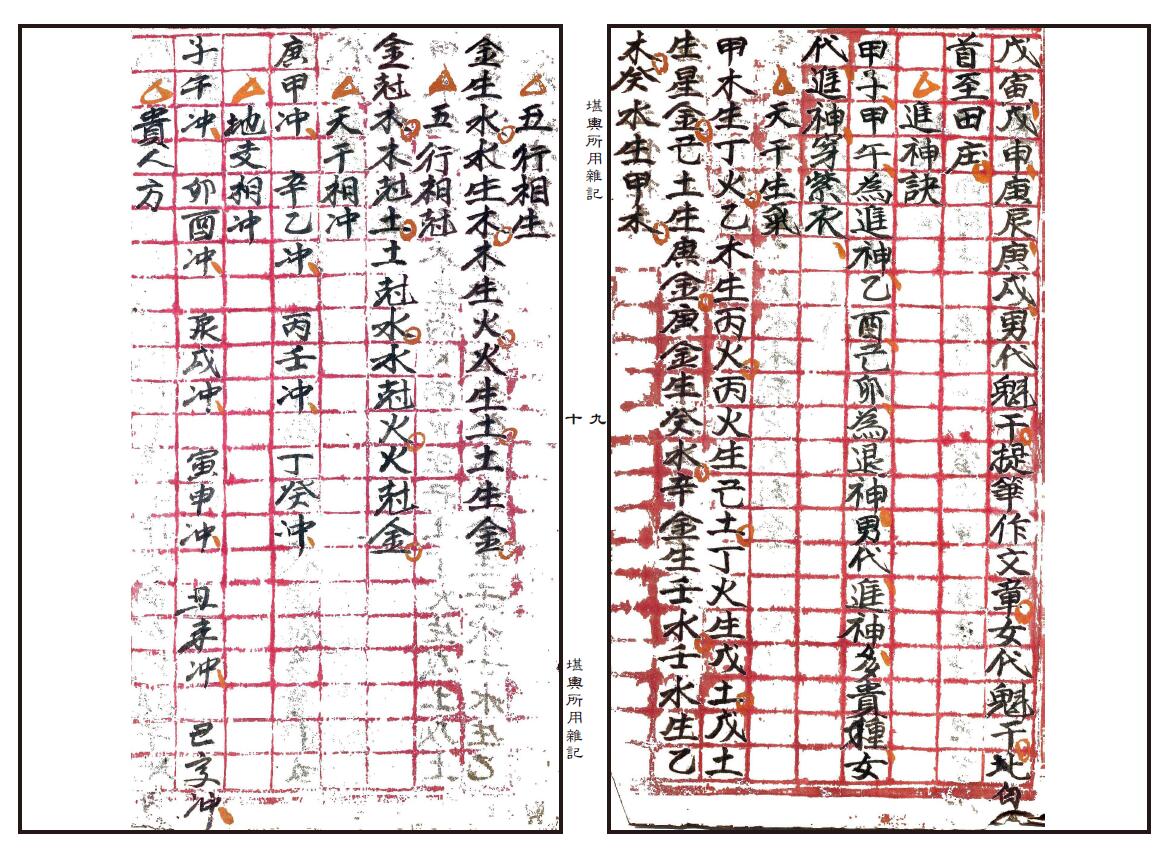 戊寅戊申庚辰庚戌男代魁干提筆作文章女代魁干
首至田庄
進神訣
甲子甲午為進神乙酉己卯為退神男代進神多貴種女
代進神穿紫衣
天干生氣
甲木生丁火乙木生丙火丙火生己土丁火生戊土戊土
生星金己土生庚金庚金生癸水辛金生壬水壬水生乙
木癸水生甲木
堪輿所用雜記
九
十
堪輿所用雜記
五行相生
金生水水生木木生火火生土土生金
五行相尅
金尅木木尅土土尅水水尅火火尅金
天干相冲
庚甲冲 辛乙冲 丙壬冲 丁癸冲
地支相冲
子午冲 卯酉冲 辰戌冲 寅申冲 丑未冲 巳亥冲
貴人方